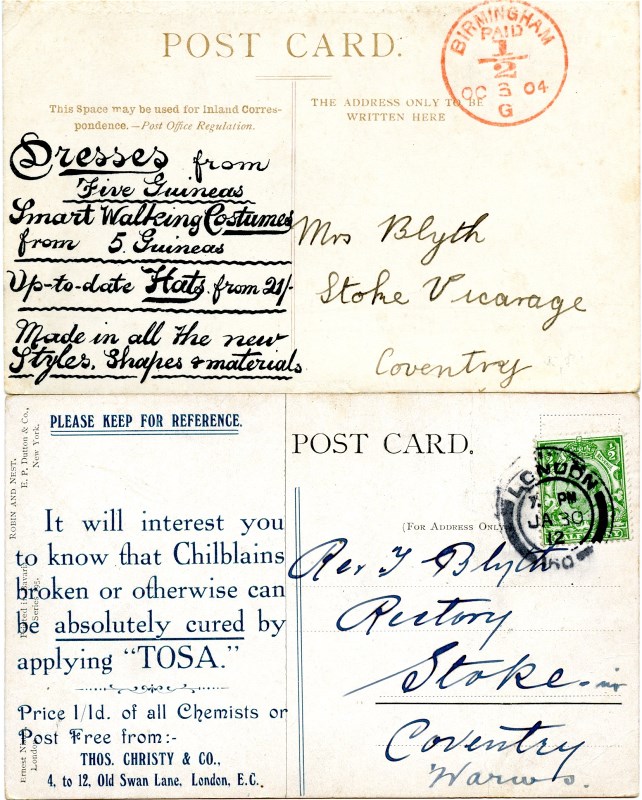 POST CARD.
BIRMINGHAM
PAID
1/2
OC 3 04
G
This Space may be used for Inland Corres-
pondence.—Post Office Regulation.
THE ADDRESS ONLY TO BE
WRITTEN HERE
Dresses from
Five Guineas
Smart Walking Costumes
from 5 Guineas
Up-to-date Hats from 21/-
Made in all the new
Styles, Shapes & materials
Mrs Blyth
Stoke Vicarage
Coventry
PLEASE KEEP FOR REFERENCE.
POST CARD.
LONDON
PM
JA 30
12
(For Address Only
It will interest you
to know that Chilblains
broken or otherwise can
be absolutely cured by
applying “TOSA.”
Price 1/1d. of all Chemists or
Post Free from:-
THOS. CHRISTY & CO.,
4, to 12, Old Swan Lane, London, E.C.
Robin and Nest.
E. P. Dutton & Co.,
New York.
Ernest Nister
London
Rev T Blyth
Rectory
Stoke
Coventry
Warws.